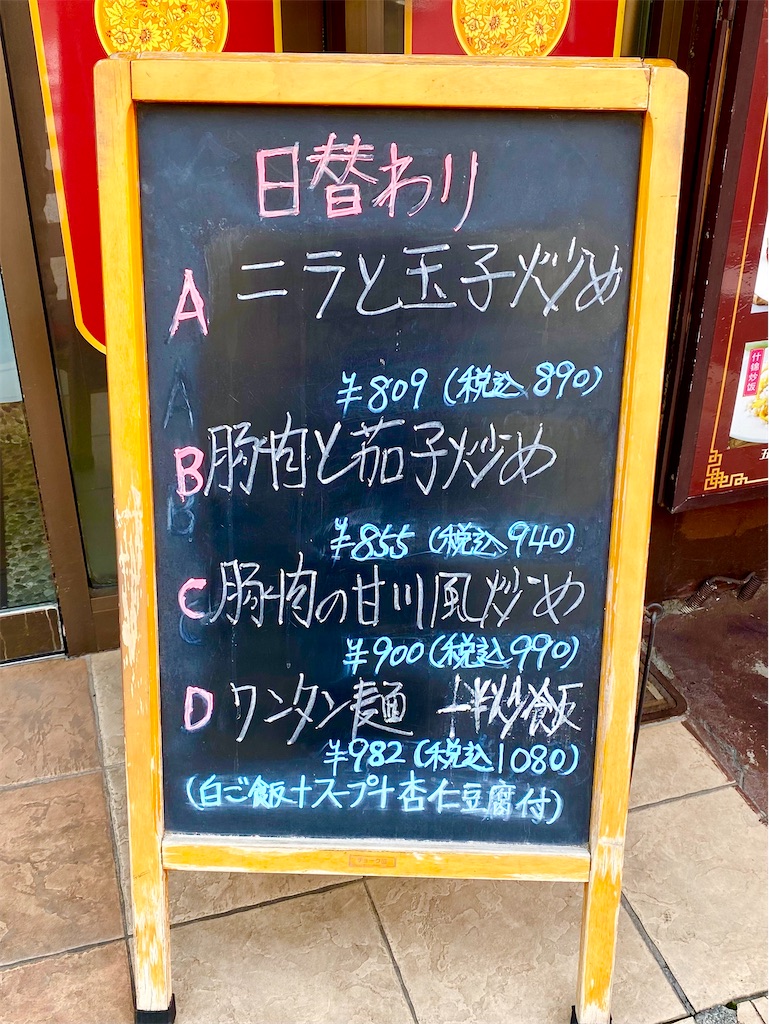 日替わり
A ニラと玉子炒め
¥809(税込890)
B 豚肉と茄子炒め
¥855(税込940)
C 豚肉の甘川風炒め
¥900(税込990)
D ワンタン麺 +半炒飯
¥982(税込1080)
(白ご飯+スープ+杏仁豆腐付)
什锦炒饭
五